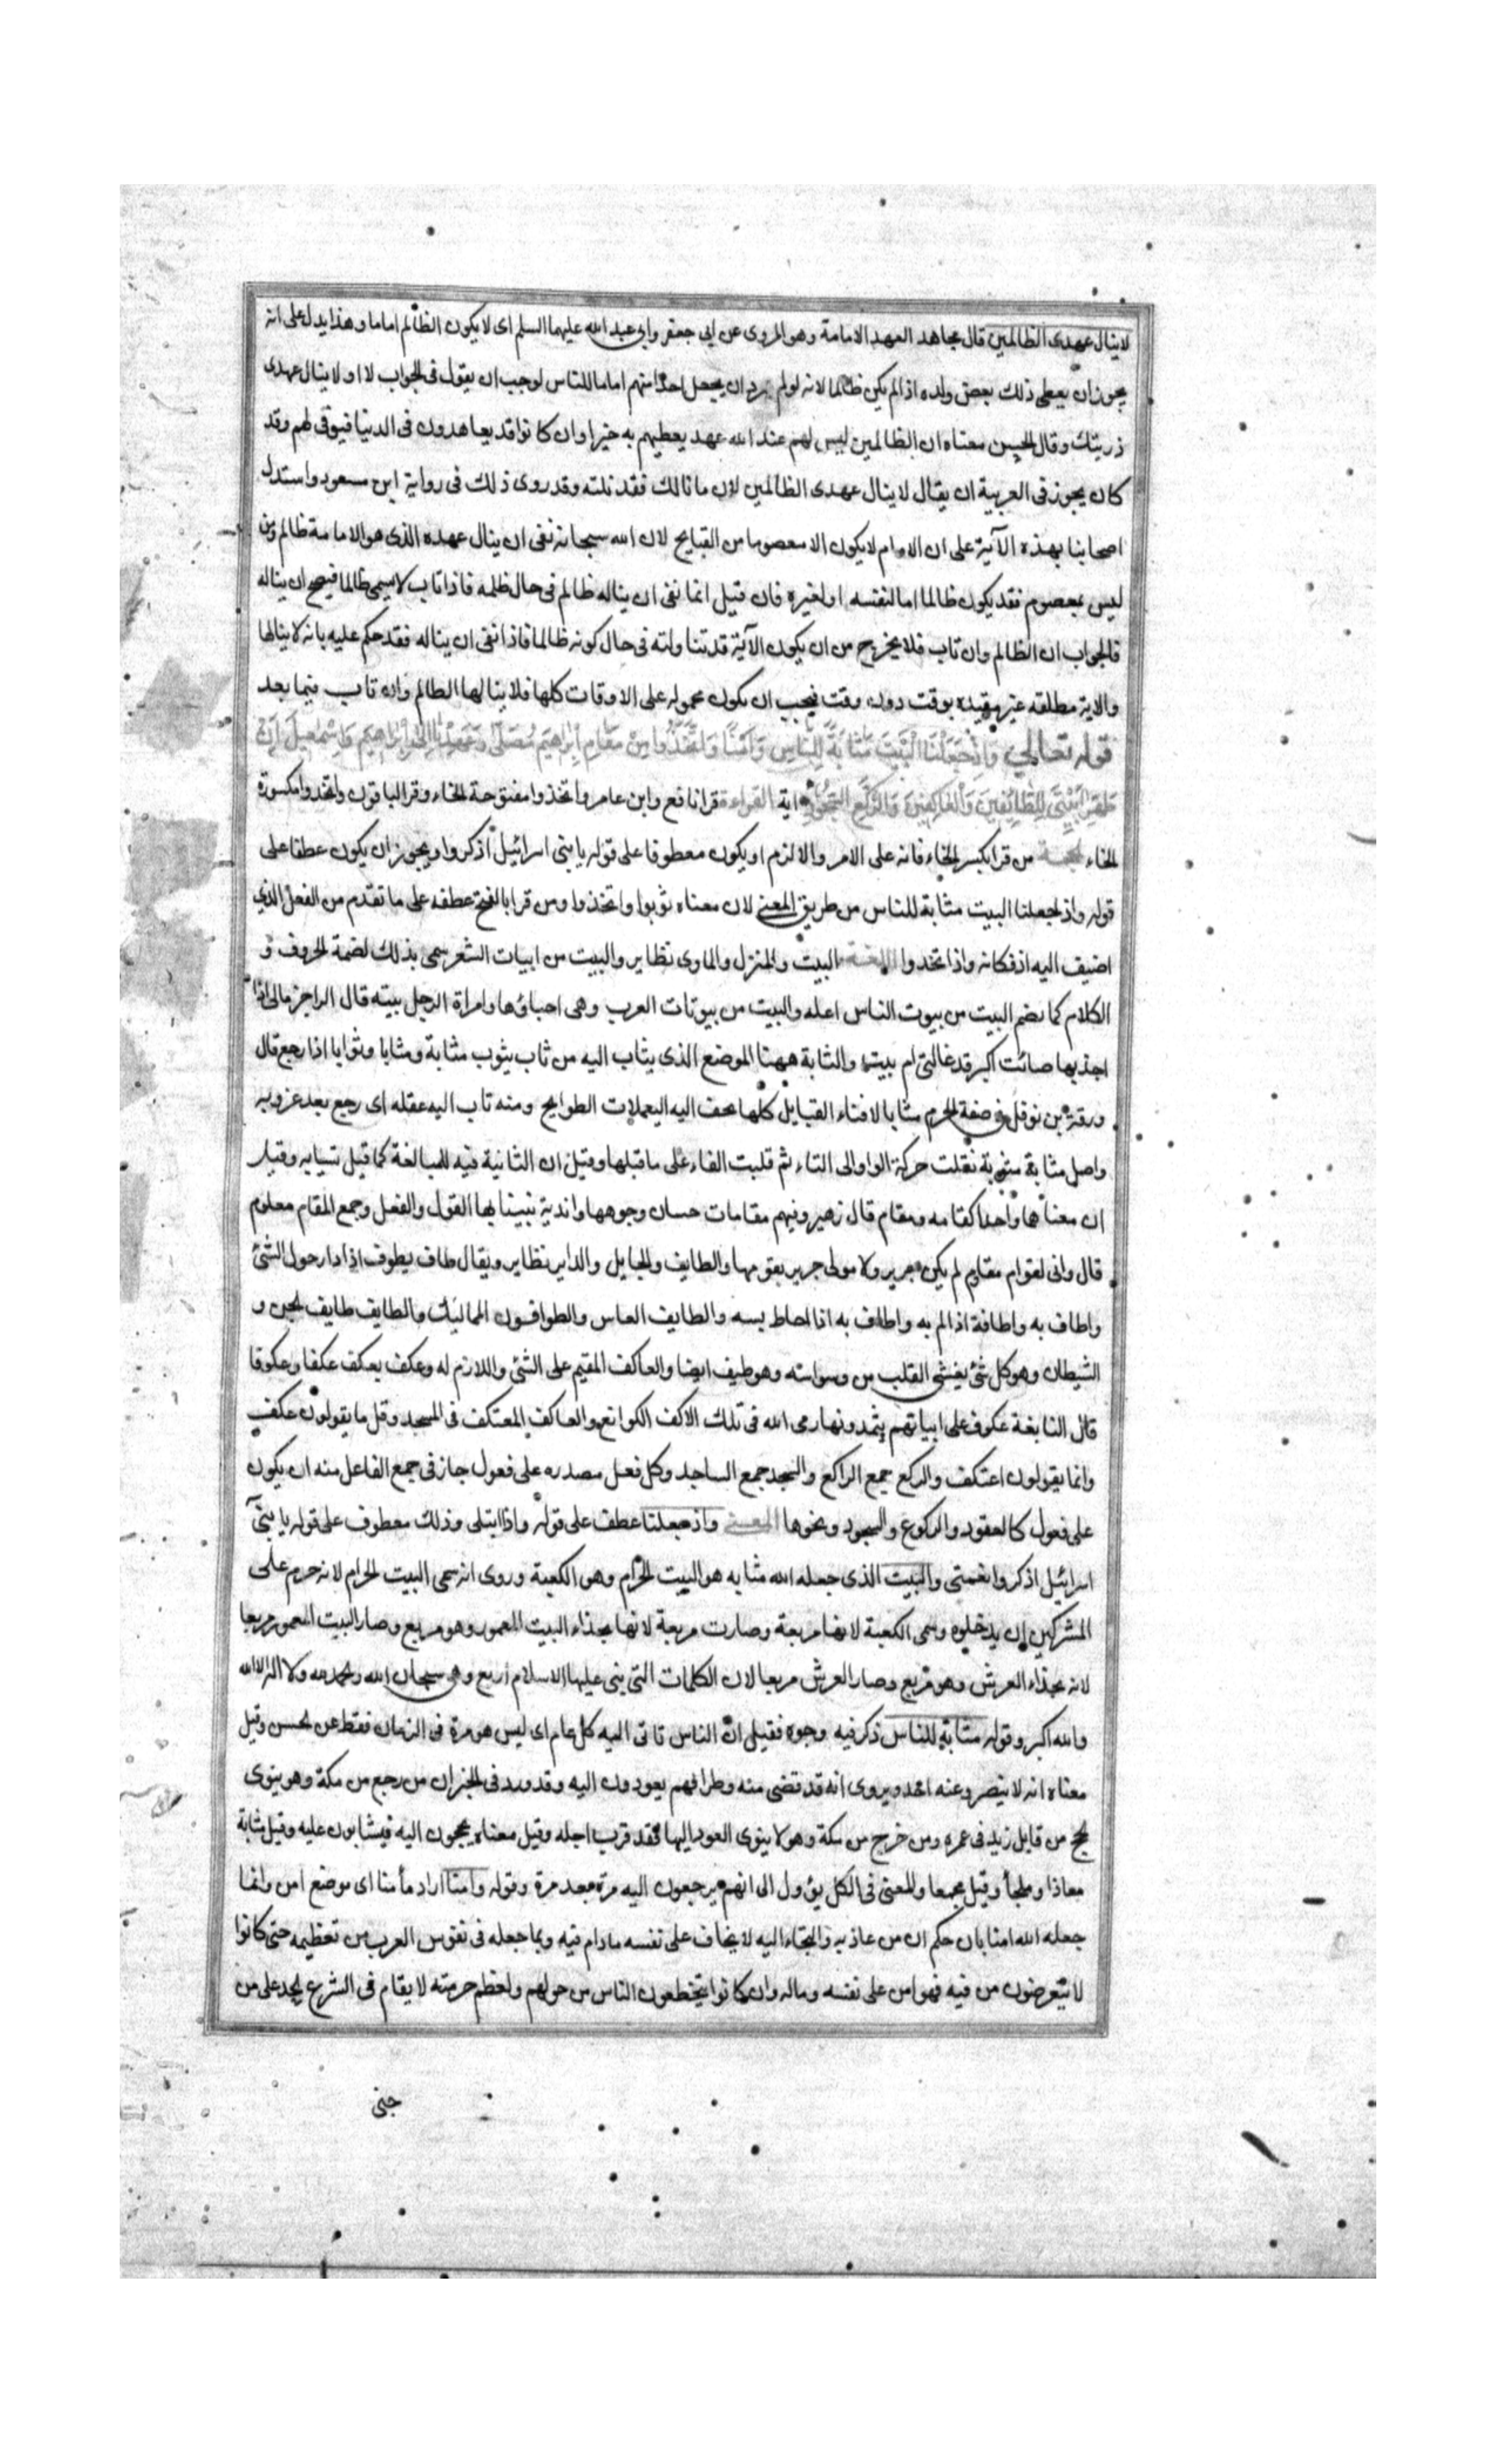 لا ينال عهدى الظالمين قال مجاهد العهد الامامة وهو المروى عن ابى جعفر وابى عبد الله عليهما السلم اى لا يكون الظالم اماما وهذا يدل على انه
يجوز ان يعطى ذلك بعض ولده اذا لم يكن ظالما لانه لو لم يرد ان يجعل احدا منهم اماما للناس لوجب ان يقول فى الجواب لا او لا ينال عهدى
ذريتك وقال الحسن معناه ان الظالمين ليس لهم عند الله عهد يعطيهم به خيرا وان كانوا قد يعاهدون فى الدنيا فيوفى لهم وقد
كان يجوز فى العربية ان يقال لا ينال عهدى الظالمين لان ما نالك فقد نلته وقد روى ذلك فى رواية ابن مسعود واستدل
اصحابنا بهذه الآية على ان الامام لا يكون الا معصوما من القبايح لان الله سبحانه نفى ان ينال عهده الذى هو الامامة ظالم ومن
ليس بمعصوم فقد يكون ظالما اما لنفسه او لغيره فان قيل انما نفى ان يناله ظالم فى حال ظلمه فاذا تاب لا يسمى ظالما فيصح ان يناله
فالجواب ان الظالم وان تاب فلا يخرج من ان يكون الآية قد تناولته فى حال كونه ظالما فاذا نفى ان يناله فقد حكم عليه بانه لا ينالها
والاية مطلقه غير مقيده بوقت دون وقت فيجب ان يكون محموله على الاوقات كلها فلا ينالها الظالم وان تاب فيما بعد
قوله تعالى وَاِذْ جَعَلْنَا الْبَيْتَ مَثَابَةً لِلنَّاسِ وَاَمْنًا وَاتَّخَذُوا مِنْ مَقَامِ اِبْرٰهِيمَ مُصَلًّى وَعَهِدْنَا اِلٰى اِبْرٰاهِيمَ وَاِسْمٰعِيلَ اَنْ
طَهِّرَا بَيْتِىَ لِلطَّائِفِينَ وَالْعَاكِفِينَ وَالرُّكَّعِ السُّجُودِ اية القراءة قرا نافع وابن عامر واتخذوا مفتوحة الخاء وقرا الباقون واتخذوا مكسورة
الخاء الحجة من قرا بكسر الخاء فانه على الامر والالزم او يكون معطوفا على قوله يا بنى اسرائيل اذكروا ويجوز ان يكون عطفا على
قوله واذ جعلنا البيت مثابة للناس من طريق المعنى لان معناه ثوبوا واتخذوا ومن قرا بالفتح عطفه على ما تقدم من الفعل الذي
اضيف اليه اذ فكانه واذ اتخذوا اللغة البيت والمنزل والماوى نظاير والبيت من ابيات الشعر سمى بذلك لضمه الحروف و
الكلام كما يضم البيت من بيوت الناس اهله والبيت من بيوتات العرب وهى احياؤها وامراة الرجل بيته قال الراجز مالى اذا
اجذبها صائت اكبر قد غالنى ام بيت والثابة ههنا الموضع الذى يثاب اليه من ثاب يثوب مثابة ومثابا وثوابا اذا رجع قال
ورقة بن نوفل فى صفة الحرم مثابا لافناء القبايل كلها تخف اليه اليعملات الطوايح ومنه ثاب اليه عقله اى رجع بعد عزوبه
واصل مثابة مثوبة نقلت حركة الواو الى الثاء ثم قلبت الفاء على ما قبلها وقيل ان الثانية فيه للمبالغة كما قيل نسابه وقيل
ان معناها واحد كمقامه ومقام قال زهير وفيهم مقامات حسان وجوهها واندية ينبينا بها القول والفعل وجمع المقام معلوم
قال وانى لقوام مقاوم لم يكن جرير ولا مولى جرير يقومها والطايف والجايل والداير نظاير ويقال طاف يطوف اذا دار حول الشئ
واطاف به واطافة اذا لم به واطاف به اذا احاط بسه والطايف العاس والطوافون المماليك والطايف طايف الجن و
الشيطان وهو كل شئ يغشى القلب من وسواسه وهو طيف ايضا والعاكف المقيم على الشئ واللازم له وعكف يعكف عكفا وعكوفا
قال النابغة عكوف على ابياتهم يثمدونها رمى الله فى تلك الاكف الكوانع والعاكف المعتكف فى المسجد وقل ما يقولون عكف
وانما يقولون اعتكف والركع جمع الراكع والسجد جمع الساجد وكل فعل مصدره على فعول جاز فى جمع الفاعل منه ان يكون
على فعول كالعقود والركوع والسجود ونحوها المعنى واذ جعلنا عطف على قوله واذ ابتلى وذلك معطوف على قوله يا بنى
اسرائيل اذكروا نعمتى والبيت الذى جعله الله مثابه هو البيت الحرام وهو الكعبة وروى انه سمى البيت الحرام لانه حرم على
المشركين ان يدخلوه وسمى الكعبة لانها مربعة وصارت مربعة لانها بحذاء البيت المعمور وهو مربع وصار البيت المعمور مربعا
لانه بحذاء العرش وهو مربع وصار العرش مربعا لان الكلمات التى بنى عليها الاسلام اربع وهى سبحان الله والحمد لله ولا اله الا الله
والله اكبر وقوله مثابة للناس ذكر فيه وجوه فقيل ان الناس تاتى اليه كل عام اى ليس هو مرة فى الزمان فقط عن الحسن وقيل
معناه انه لا ينصرف عنه احد ويروى انه قد قضى منه وطرا فهم يعودون اليه وقد ورد فى الخبر ان من رجع من مكة وهو ينوى
الحج من قابل زيد فى عمره ومن خرج من مكة وهو لا ينوى العود اليها فقد قرب اجله وقيل معناه يحجون اليه فيثابون عليه وقيل مثابة
معاذا وملجأ وقيل مجمعا والمعنى فى الكل يؤول الى انهم يرجعون اليه مرة بعد مرة وقوله وامنا اراد مأمنا اى موضع امن وانما
جعله الله امنا بان حكم ان من عاذ به والتجاء اليه لا يخاف على نفسه ما دام فيه وبما جعله فى نفوس العرب من تعظيمه حتى كانوا
لا يتعرضون من فيه فهو امن على نفسه وماله وان كانوا يتخطفون الناس من حولهم ولعظم حرمته لا يقام فى الشرع الحد على من
جنى